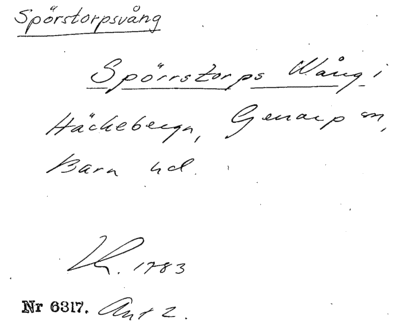 Spörstorpsvång
Spörrstorps Wång i
Häckeberga, Genarp sn,
Bara hd.
Kh. 1783
Nr 6317. Ant 2.